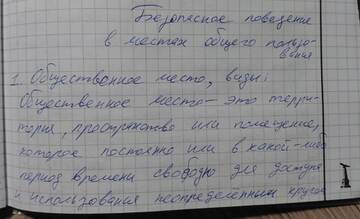 Безопасное поведение
в местах общего пользо-
вания
1. Общественное место, виды:
Общественное место – это терри-
тория, пространство или помещение,
которое постоянно или в какой-либо
период времени свободно для доступа
и использования неопределенным кругом